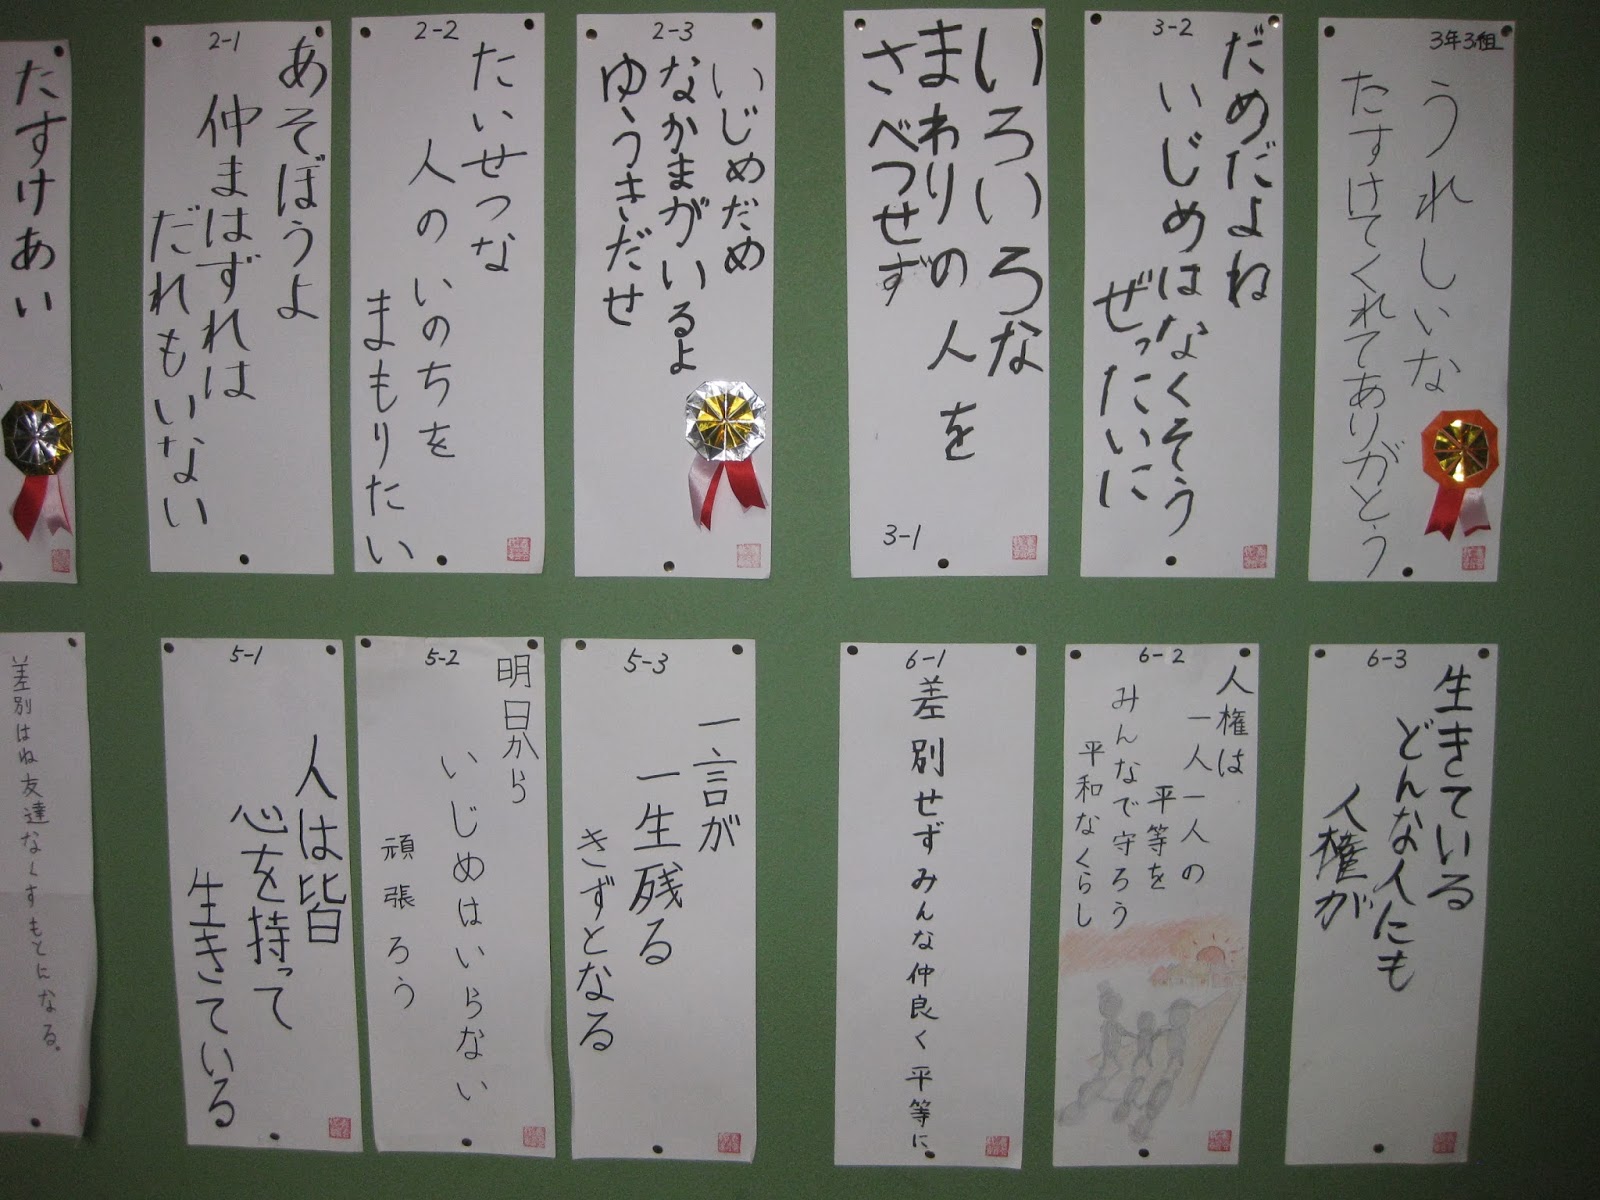 たすけあい
2-1
あそぼうよ
仲まはずれは
だれもいない
2-2
たいせつな
人のいのちを
まもりたい
2-3
いじめだめ
なかまがいるよ
ゆうきだせ
いろいろな
まわりの人を
さべつせず
3-1
3-2
だめだよね
いじめはなくそう
ぜったいに
3年3組
うれしいな
たすけてくれてありがとう
差別はね友達なくすもとになる。
5-1
人は皆
心を持って
生きている
5-2
明日から
いじめはいらない
頑張ろう
5-3
一言が
一生残る
きずとなる
6-1
差別せずみんな仲良く平等に
6-2
人権は
一人一人の
平等を
みんなで守ろう
平和なくらし
6-3
生きている
どんな人にも
人権が